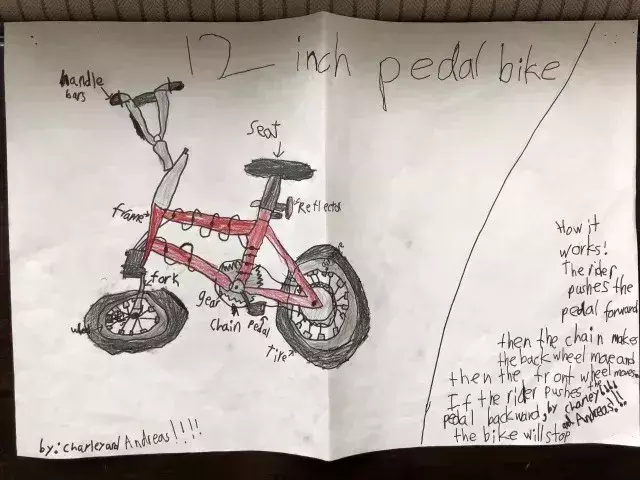 12 inch pedal bike
handle
bars
seat
Reflector
frame
fork
gear
chain
pedal
tire
by: charley and Andreas!!!!
How it
works!
The rider
pushes the
pedal forward
then the chain makes
the back wheel move and
then the front wheel moves.
If the rider pushes the
pedal backward,
the bike will stop
by charley
and Andreas!!!